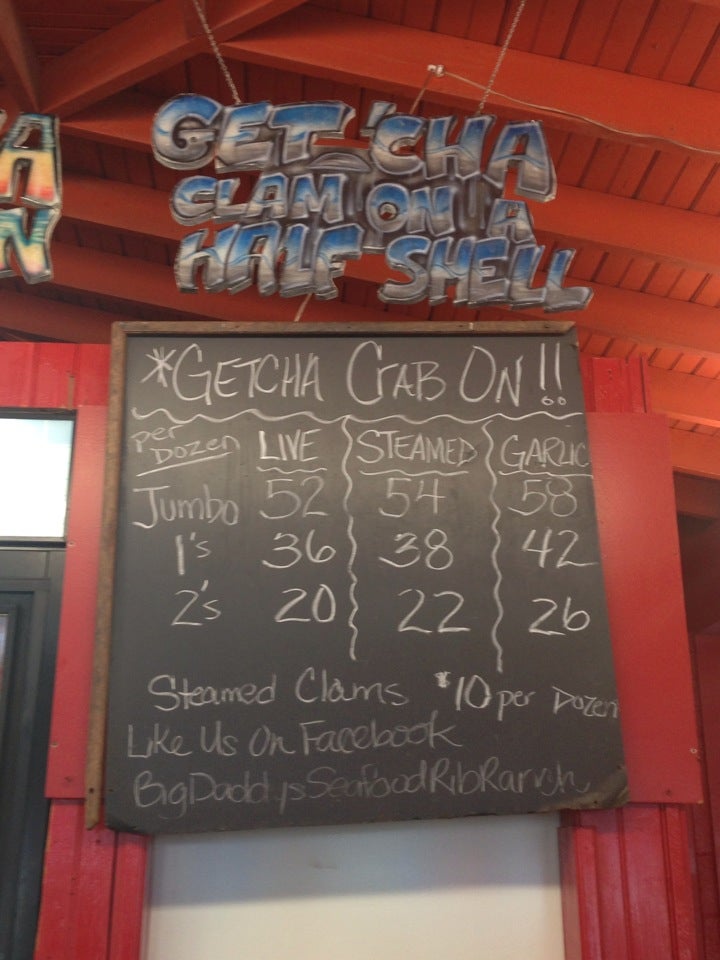 A
N
GET 'CHA
CLAM ON A
HALF SHELL
*GETCHA CRAB ON!!
per Dozen LIVE STEAMED GARLIC
Jumbo 52 54 58
1's 36 38 42
2's 20 22 26
Steamed Clams $10 per Dozen
Like Us On Facebook
BigDaddysSeafoodRibRanch